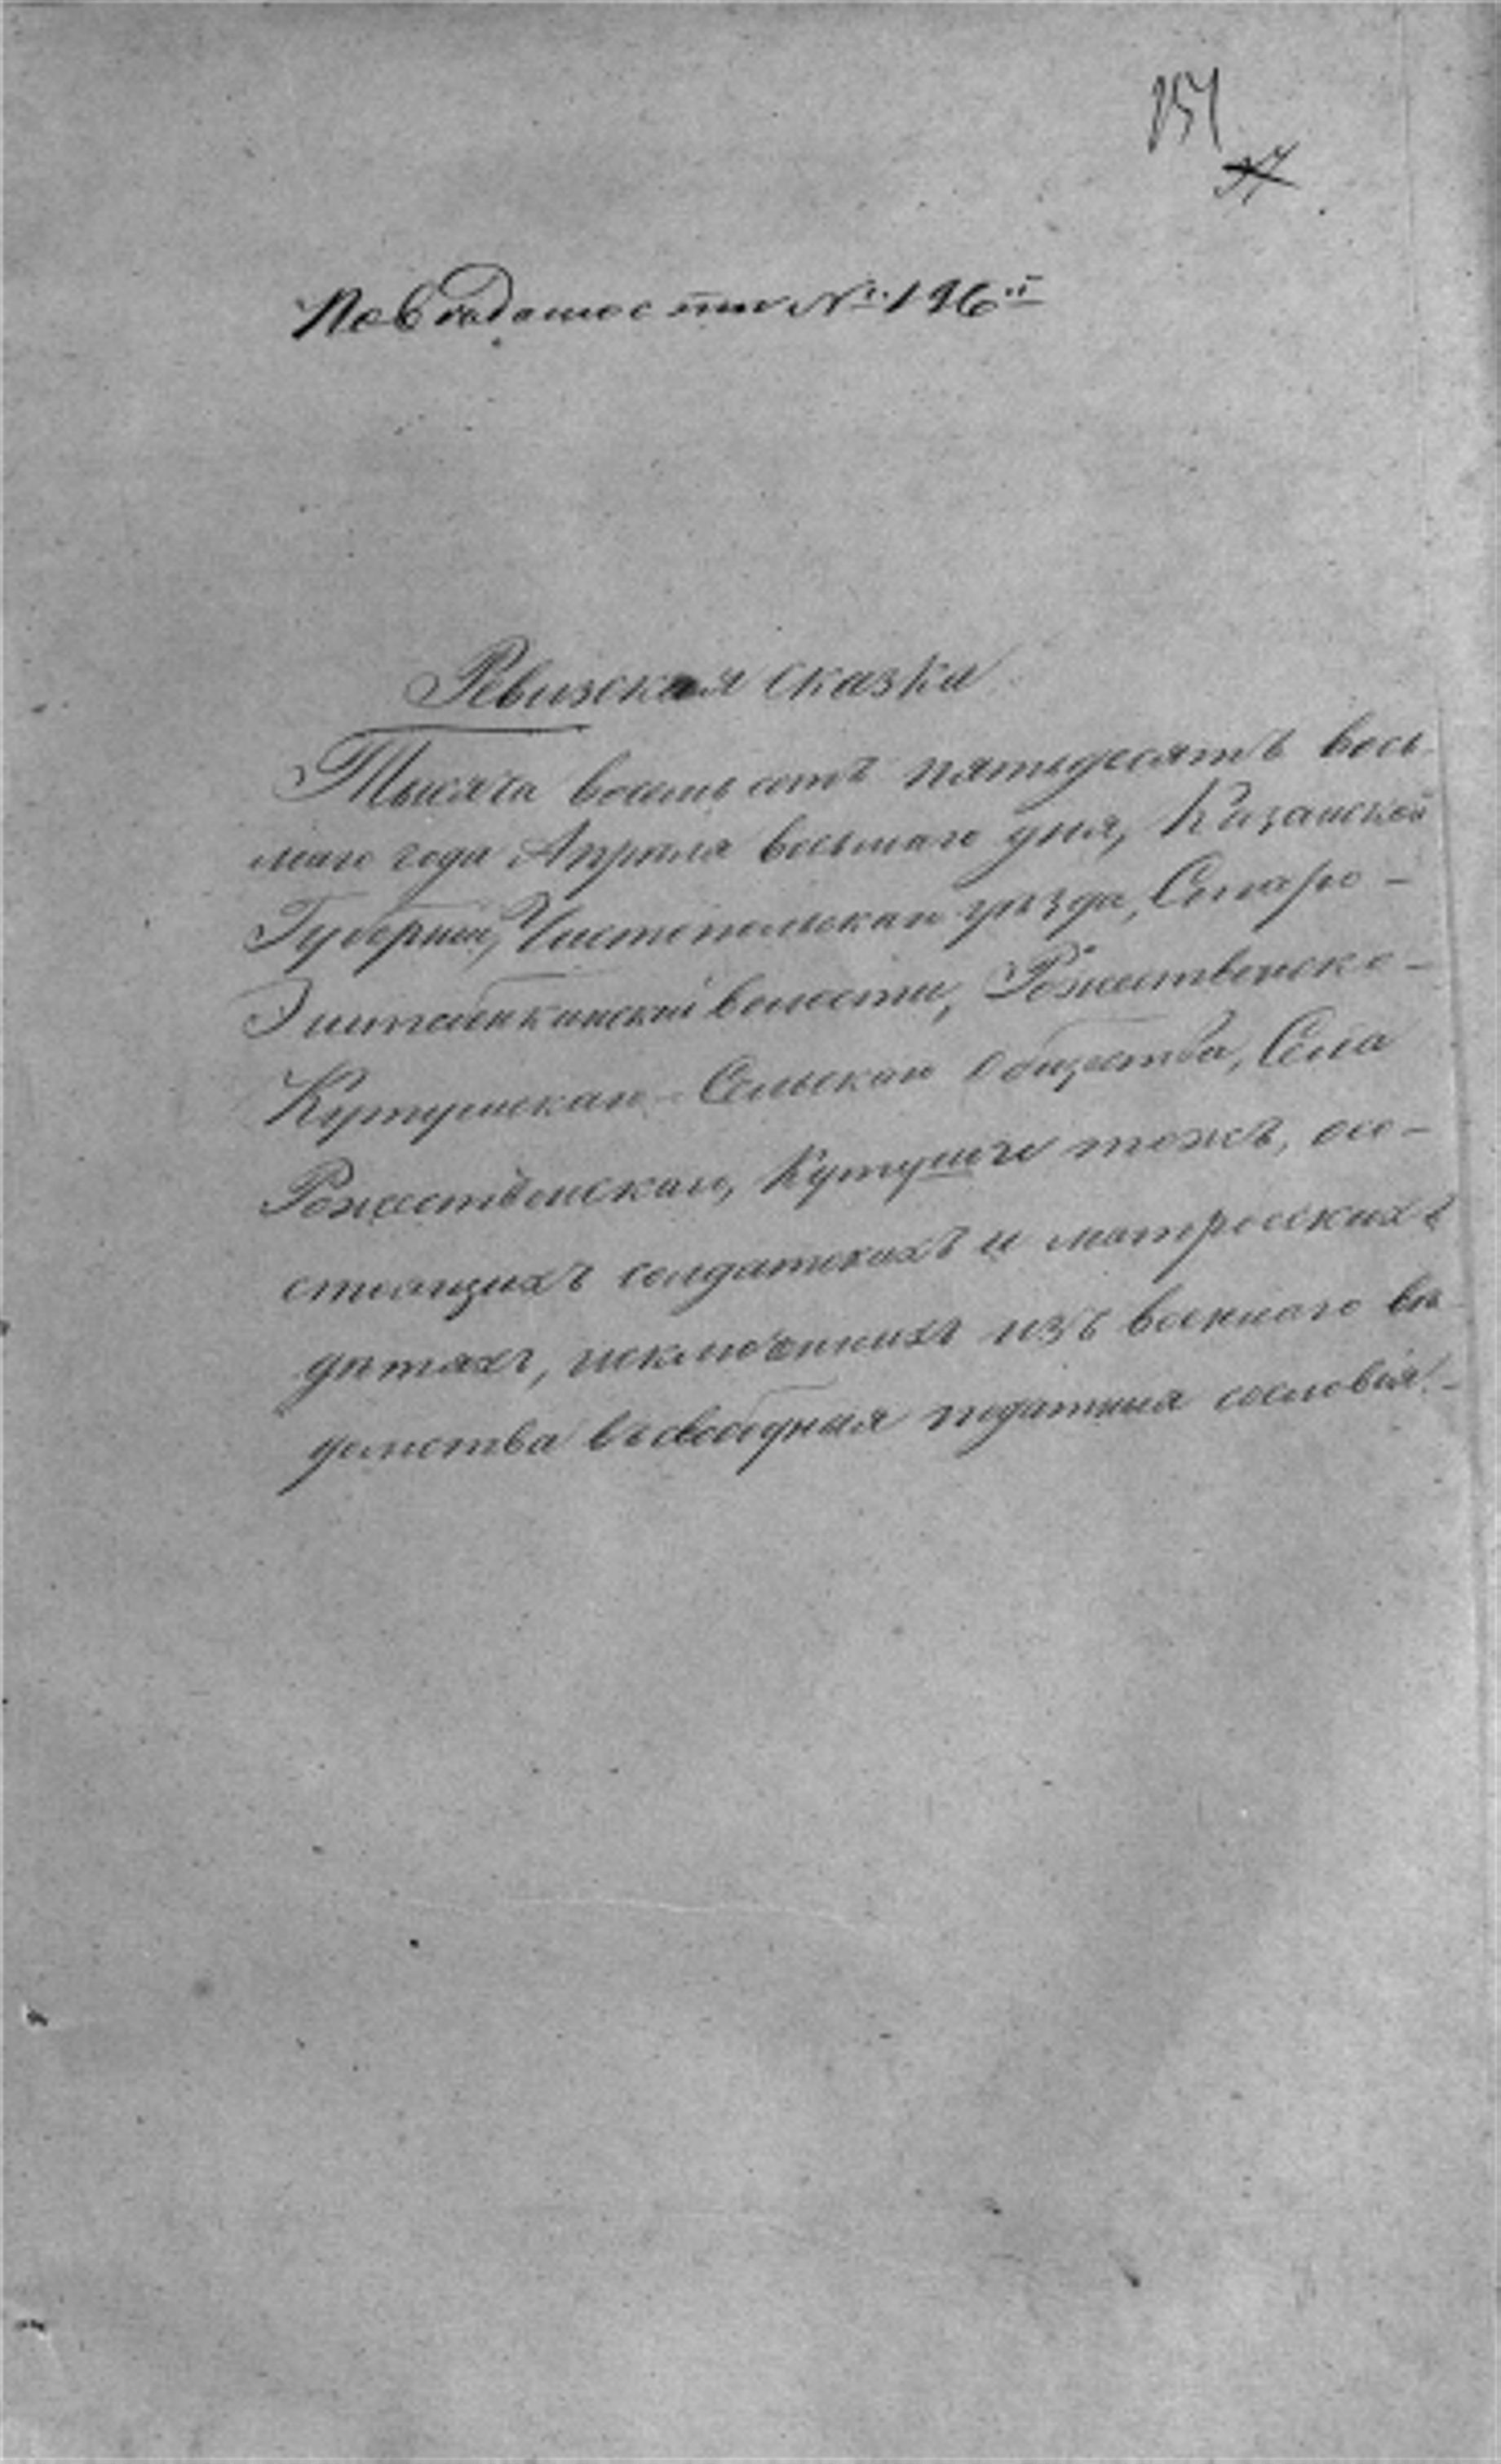 154
37
По ведомости № 196й
Ревизская сказка
Тысяча восемь сотъ пятьдесятъ вось-
маго года Апреля восьмаго дня, Казанской
Губернии, Чистопольскаго уезда, Старо-
Эштебенькинской волости, Рожественско-
Кутушскаго Сельскаго Общества, Села
Рожественскаго, Кутуши тожъ, осо-
стоящихъ солдатскихъ и матросскихъ
детяхъ, исключенныхъ изъ военнаго ве-
домства въ свободныя податныя сословія.